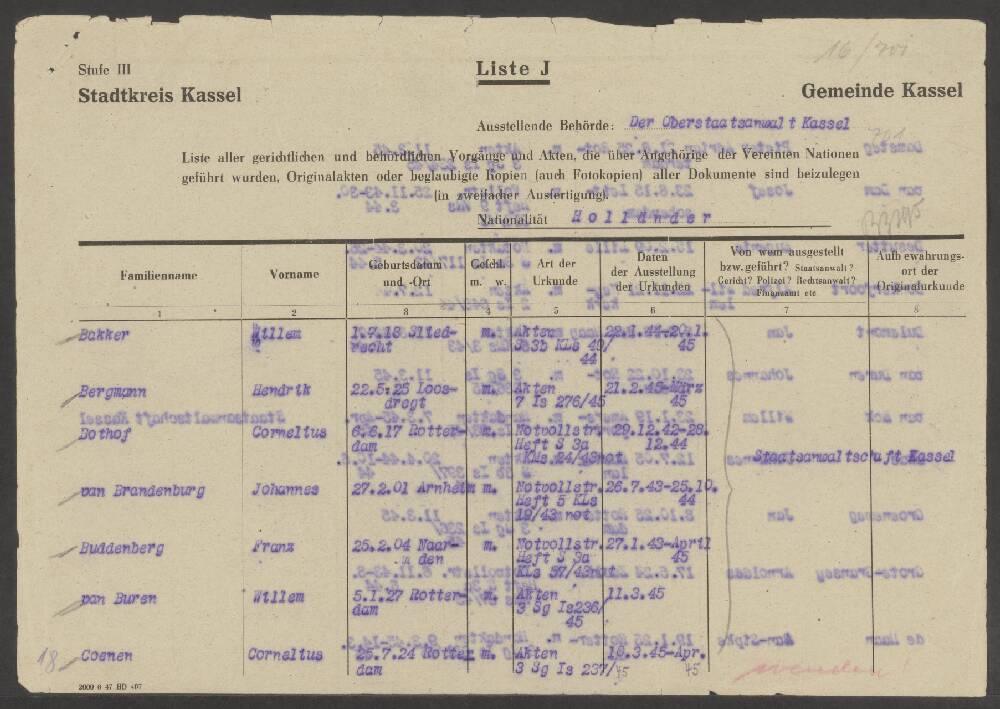 16/
Stufe III
Liste J
Stadtkreis Kassel
Gemeinde Kassel
Ausstellende Behörde: Der Oberstaatsanwalt Kassel
Liste aller gerichtlichen und behördlichen Vorgänge und Akten, die über Angehörige der Vereinten Nationen
geführt wurden, Originalakten oder beglaubigte Kopien (auch Fotokopien) aller Dokumente sind beizulegen
(in zweifacher Ausfertigung).
Nationalität Holländer
Familienname Vorname Geburtsdatum und -Ort Geschl. m. w. Art der Urkunde Daten der Ausstellung der Urkunden Von wem ausgestellt bzw. geführt? Staatsanwalt? Gericht? Polizei? Rechtsanwalt? Finanzamt etc Aufbewahrungs- ort der Originalurkunde
1 2 3 4 5 6 7 8
Bakker Willem 1.7.18 Slied- m. Akten 28.1.44-20.1.
recht 3 Sg 3b KLs 40/ 45
44
Bergmann Hendrik 22.5.25 Loos- m. Akten 21.2.45-März
drogt 7 Is 276/45 45
Bothof Cornelius 6.6.17 Rotter- m. Notvollstr. 29.12.42-28.
dam Heft S 3a 12.44
KMs.24/43not Staatsanwaltschaft Kassel
van Brandenburg Johannes 27.2.01 Arnheim m. Notvollstr. 26.7.43-25.10.
Heft 5 KLs 44
19/43 not
Buddenberg Franz 25.2.04 Naar- m. Notvollstr. 27.1.43-April
den Heft S 3a 45
KLs 57/43not
van Buren Willem 5.1.27 Rotter- m. Akten 11.3.45
dam 3 Sg Is236/
45
18 Coenen Cornelius 25.7.24 Rotter m. Akten 10.3.45-Apr.
dam 3 Sg Is 237/45 45
wenden!
2000 6 47 HD 407